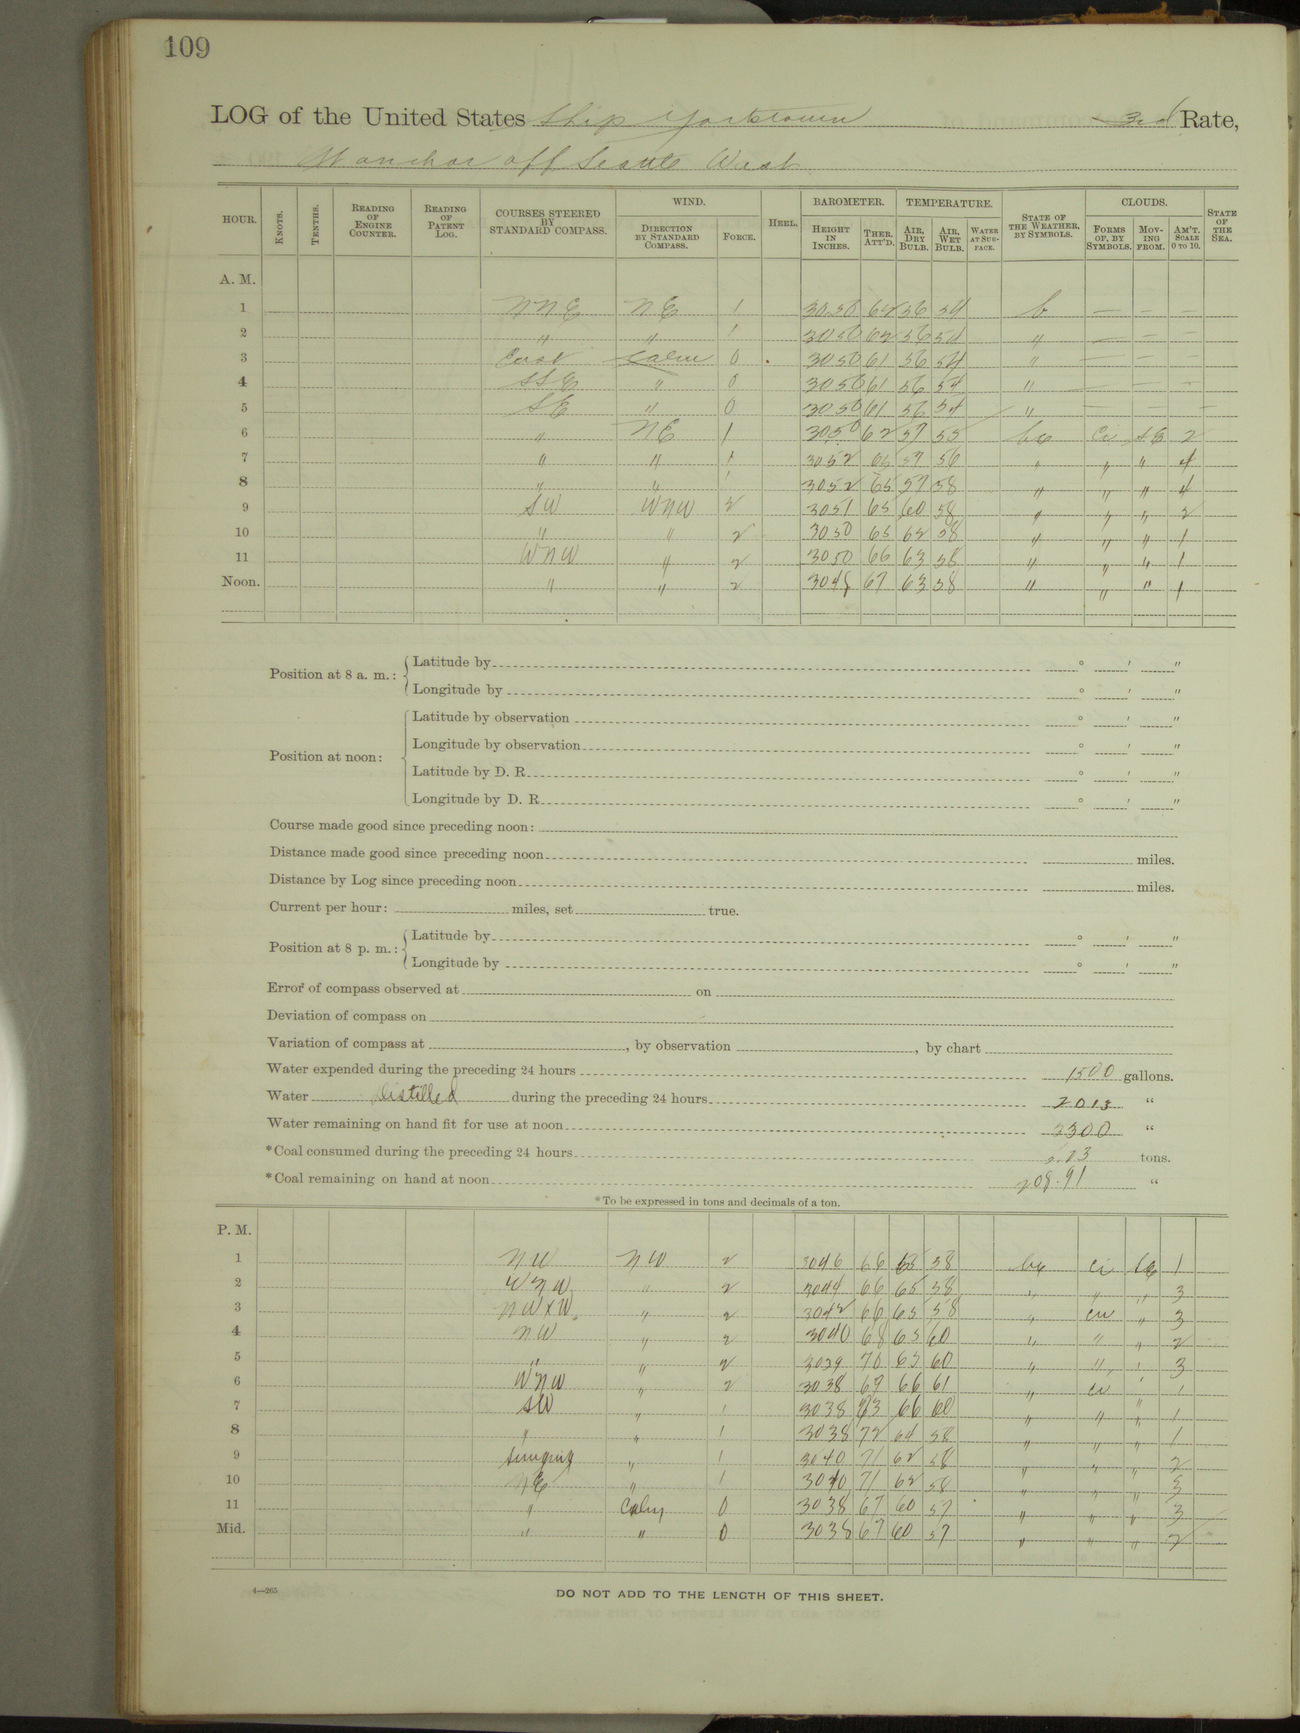 109
LOG of the United States Ship Yorktown 3rd Rate,
At anchor off Seattle Wash
HOUR. KNOTS. TENTHS. READING OF ENGINE COUNTER. READING OF PATENT LOG. COURSES STEERED BY STANDARD COMPASS. WIND. DIRECTION BY STANDARD COMPASS. FORCE. HEEL. BAROMETER. HEIGHT IN INCHES. THER. ATT'D. TEMPERATURE. AIR, DRY BULB. AIR, WET BULB. WATER AT SURFACE. STATE OF THE WEATHER, BY SYMBOLS. CLOUDS. FORMS OF, BY SYMBOLS. MOVING FROM. AM'T. SCALE 0 TO 10. STATE OF THE SEA.
A. M.
1 NNE NE 1 30.50 62 56 54 b — — —
2 " " 1 3050 62 56 54 " — — —
3 East Calm 0 3050 61 56 54 " — — —
4 SSE " 0 3050 61 56 54 " — — —
5 SE " 0 3050 61 56 54 " — — —
6 " NE 1 3050 62 57 55 bc Ci SE 2
7 " " 1 3052 65 57 56 " " " 4
8 " " 1 3052 65 57 58 " " " 4
9 SW WNW 2 3051 65 60 58 " " " 2
10 " " 2 3050 65 62 58 " " " 1
11 WNW " 2 3050 66 63 58 " " " 1
Noon. " " 2 3048 67 63 58 " " " 1
Position at 8 a. m.: Latitude by ° ' "
Longitude by ° ' "
Position at noon: Latitude by observation ° ' "
Longitude by observation ° ' "
Latitude by D. R. ° ' "
Longitude by D. R. ° ' "
Course made good since preceding noon:
Distance made good since preceding noon miles.
Distance by Log since preceding noon miles.
Current per hour: miles, set true.
Position at 8 p. m.: Latitude by ° ' "
Longitude by ° ' "
Error of compass observed at on
Deviation of compass on
Variation of compass at , by observation , by chart
Water expended during the preceding 24 hours 1500 gallons.
Water distilled during the preceding 24 hours 2013 "
Water remaining on hand fit for use at noon 3300 "
*Coal consumed during the preceding 24 hours tons.
*Coal remaining on hand at noon 208.91 "
*To be expressed in tons and decimals of a ton.
P. M.
1 NW NW 2 3046 66 65 58 bc ci SE 1
2 WNW " 2 3044 66 65 58 " " " 3
3 NWxW " 2 3042 66 65 58 " cu " 3
4 NW " 2 3040 68 65 60 " " " 2
5 " " 2 3039 70 65 60 " " " 3
6 WNW " 2 3038 69 66 61 " ci " 1
7 SW " 1 3038 73 66 60 " " " 1
8 " " 1 3038 72 64 58 " " " 1
9 Swinging " 1 3040 71 62 58 " " " 2
10 NE " 1 3040 71 62 58 " " " 3
11 " Calm 0 3038 67 60 57 " " " 3
Mid. " " 0 3038 67 60 57 " " " 2
4—265
DO NOT ADD TO THE LENGTH OF THIS SHEET.